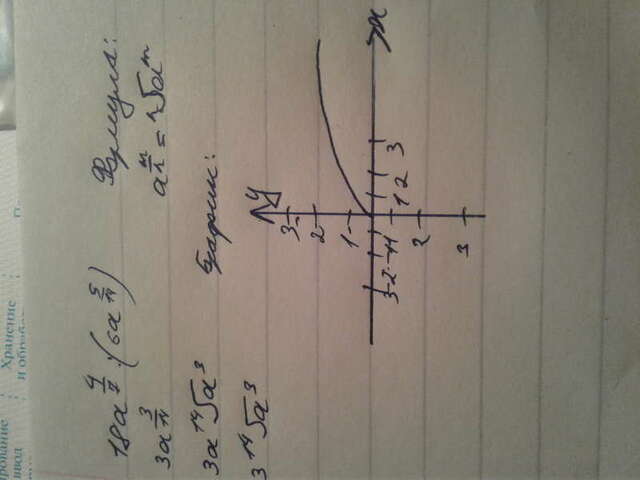 рование Хранение
ввод и обраб
18a^{4/7} : (6a^{5/14}) Формула:
3a^{3/14} a^{m/n} = ^n√a^m
3a ^{14}√a^3 График:
3 ^{14}√a^3
y
3
2
1
3 -2 -1 1 2 3 x
2
3